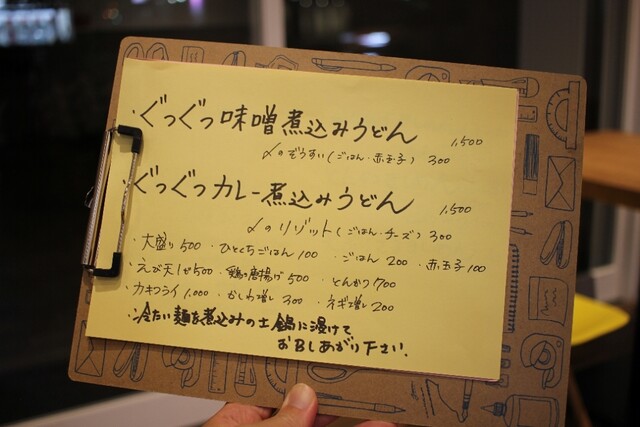 ・ぐつぐつ味噌煮込みうどん 1,500
〆のぞうすい(ごはん・赤玉子) 300
・ぐつぐつカレー煮込みうどん 1,500
〆のリゾット(ごはん・チーズ) 300
・大盛り500 ・ひとくちごはん100 ・ごはん200 ・赤玉子100
・えび天しが500 ・鶏の唐揚げ500 ・とんかつ700
・カキフライ1,000 ・かしわ増し300 ・ネギ増し200
・冷たい麺を煮込みの土鍋に浸けて
お召しあがり下さい.